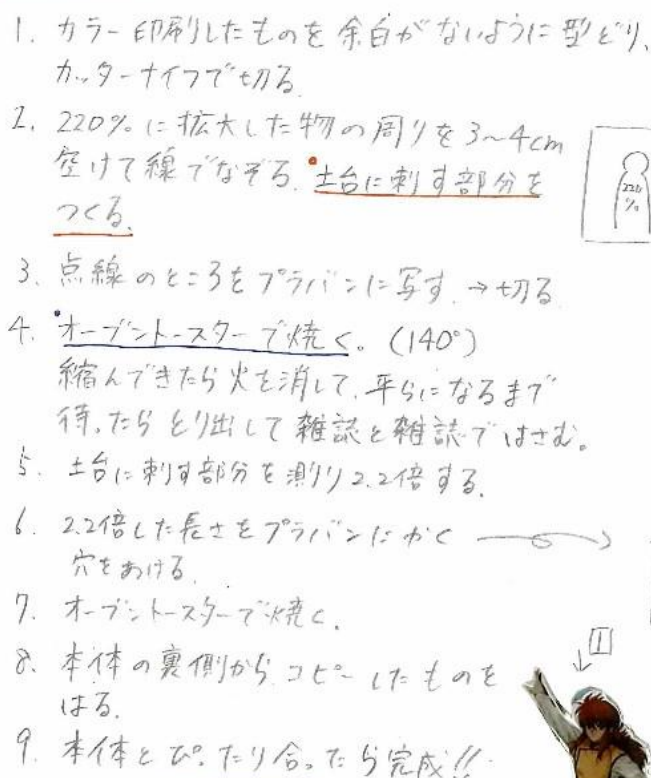 1. カラー印刷したものを余白がないように型どり、
カッターナイフで切る
2. 220%に拡大した物の周りを3〜4cm
空けて線でなぞる。土台に刺す部分を
つくる。
220
%
3. 点線のところをプラバンに写す。→切る
4. オーブントースターで焼く。(140°)
縮んできたら火を消して、平らになるまで
待ったらとり出して雑誌と雑誌ではさむ。
5. 土台に刺す部分を測り2.2倍する。
6. 2.2倍した長さをプラバンにかく
穴をあける。
7. オーブントースターで焼く。
8. 本体の裏側からコピーしたものを
はる。
1
9. 本体とぴったり合ったら完成!!